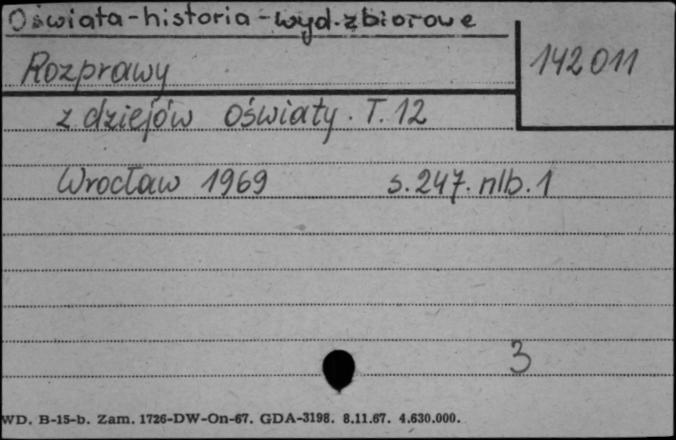 Oświata-historia-wyd.zbiorowe
Rozprawy
142011
z dziejów oświaty. T.12
Wrocław 1969 s.247. nlb.1
3
WD. B-15-b. Zam. 1726-DW-On-67. GDA-3198. 8.11.67. 4.630.000.